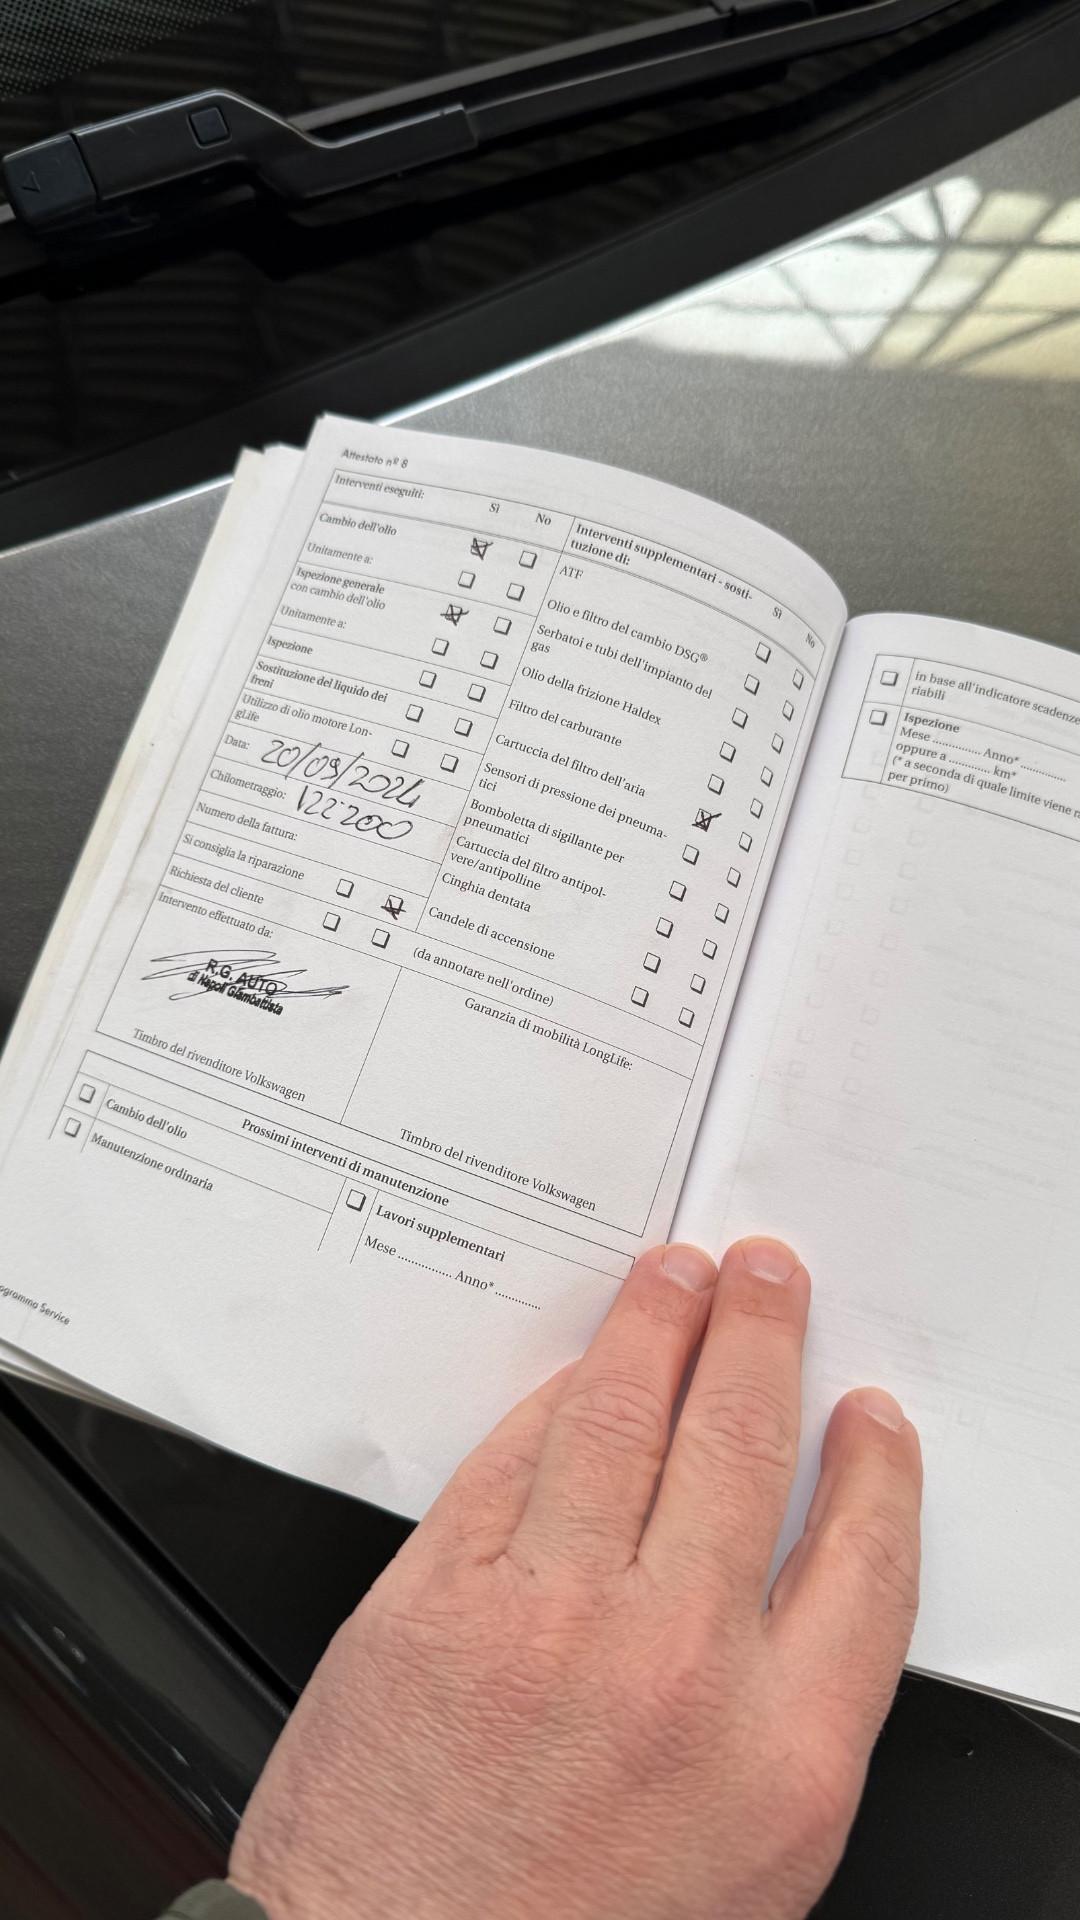 Attestato nº 8
Interventi eseguiti:
Sì No
Cambio dell'olio
Unitamente a:
Ispezione generale
con cambio dell'olio
Unitamente a:
Ispezione
Sostituzione del liquido dei
freni
Utilizzo di olio motore Lon-
gLife
Data: 20/09/2024
Chilometraggio: 122200
Numero della fattura:
Si consiglia la riparazione
Richiesta del cliente
(da annotare nell'ordine)
Intervento effettuato da:
R.G. AUTO
di Napoli Giambattista
Timbro del rivenditore Volkswagen
Interventi supplementari - sosti-
tuzione di:
Sì No
ATF
Olio e filtro del cambio DSG®
Serbatoi e tubi dell'impianto del
gas
Olio della frizione Haldex
Filtro del carburante
Cartuccia del filtro dell'aria
Sensori di pressione dei pneuma-
tici
Bomboletta di sigillante per
pneumatici
Cartuccia del filtro antipol-
vere/antipolline
Cinghia dentata
Candele di accensione
Garanzia di mobilità LongLife:
Timbro del rivenditore Volkswagen
Prossimi interventi di manutenzione
Cambio dell'olio
Manutenzione ordinaria
Lavori supplementari
Mese ............... Anno*.............
Service
in base all'indicatore
riabili
Ispezione
Mese ............. Anno* .............
oppure a ............ km*
(* a seconda di quale limite viene
per primo)